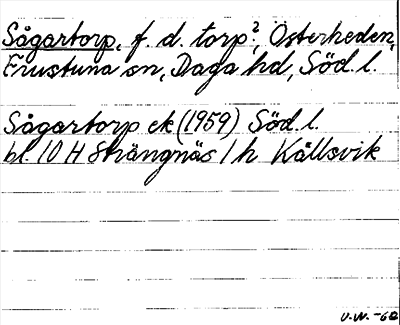 Sågartorp, f. d. torp?, Österheden,
Frustuna sn, Daga hd, Söd. l.
Sågartorp ek (1959) Söd. l.
bl. 10 H Strängnäs 1 h Kållsvik
U.W. -62